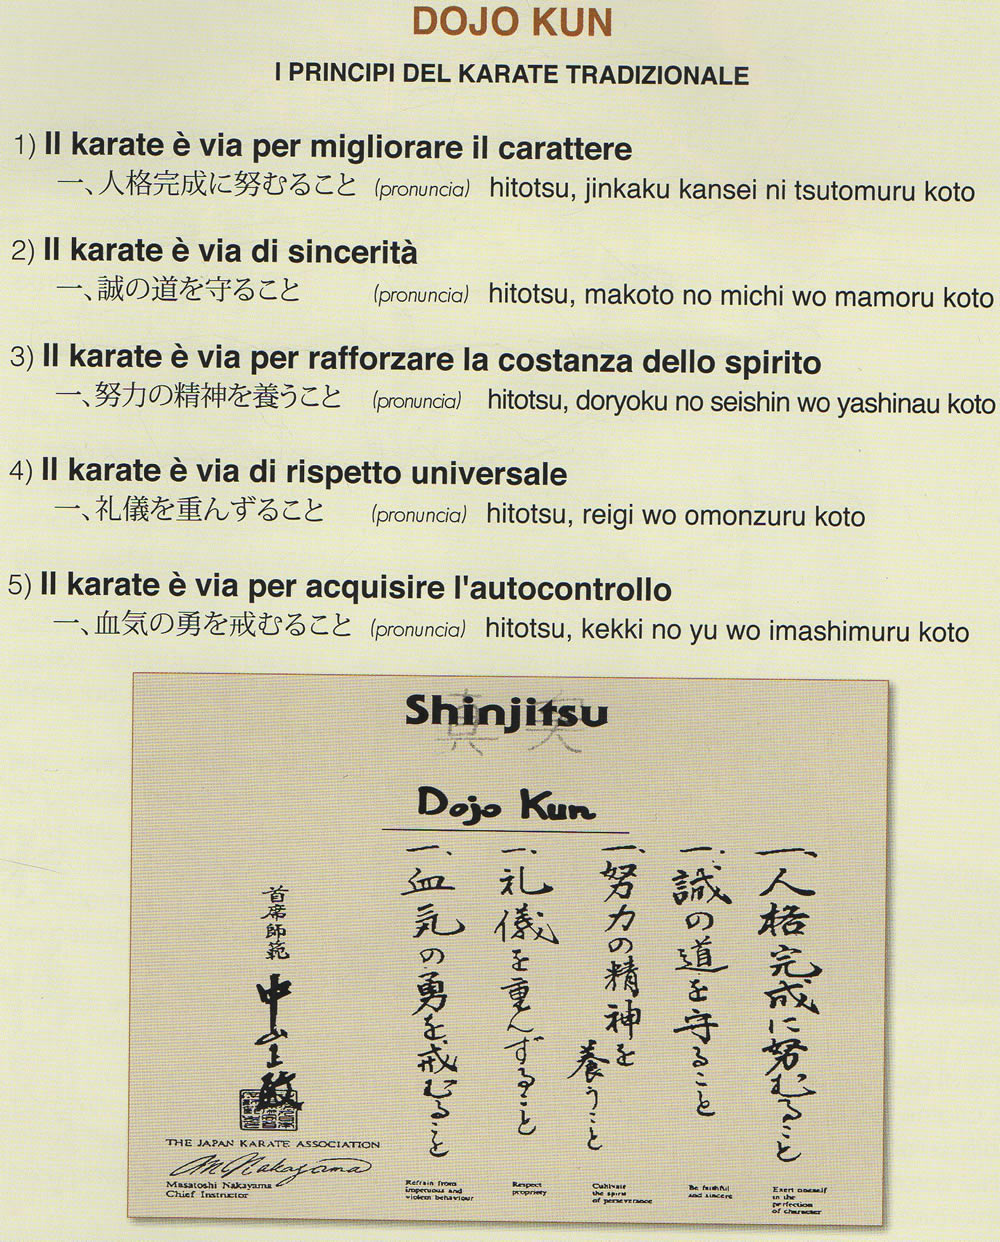 DOJO KUN
I PRINCIPI DEL KARATE TRADIZIONALE
1) Il karate è via per migliorare il carattere
一、人格完成に努むること (pronuncia) hitotsu, jinkaku kansei ni tsutomuru koto
2) Il karate è via di sincerità
一、誠の道を守ること (pronuncia) hitotsu, makoto no michi wo mamoru koto
3) Il karate è via per rafforzare la costanza dello spirito
一、努力の精神を養うこと (pronuncia) hitotsu, doryoku no seishin wo yashinau koto
4) Il karate è via di rispetto universale
一、礼儀を重んずること (pronuncia) hitotsu, reigi wo omonzuru koto
5) Il karate è via per acquisire l'autocontrollo
一、血気の勇を戒むること (pronuncia) hitotsu, kekki no yu wo imashimuru koto
Shinjitsu
Dojo Kun
一、人格完成に努むること
一、誠の道を守ること
一、努力の精神を養うこと
一、礼儀を重んずること
一、血気の勇を戒むること
首席師範
中山正敏
THE JAPAN KARATE ASSOCIATION
M Nakayama
Masatoshi Nakayama
Chief Instructor
Refrain from
impetuous and
violent behaviour
Respect
propriety
Cultivate
the spirit
of perseverance
Be faithful
and sincere
Exert oneself
in the
perfection
of character